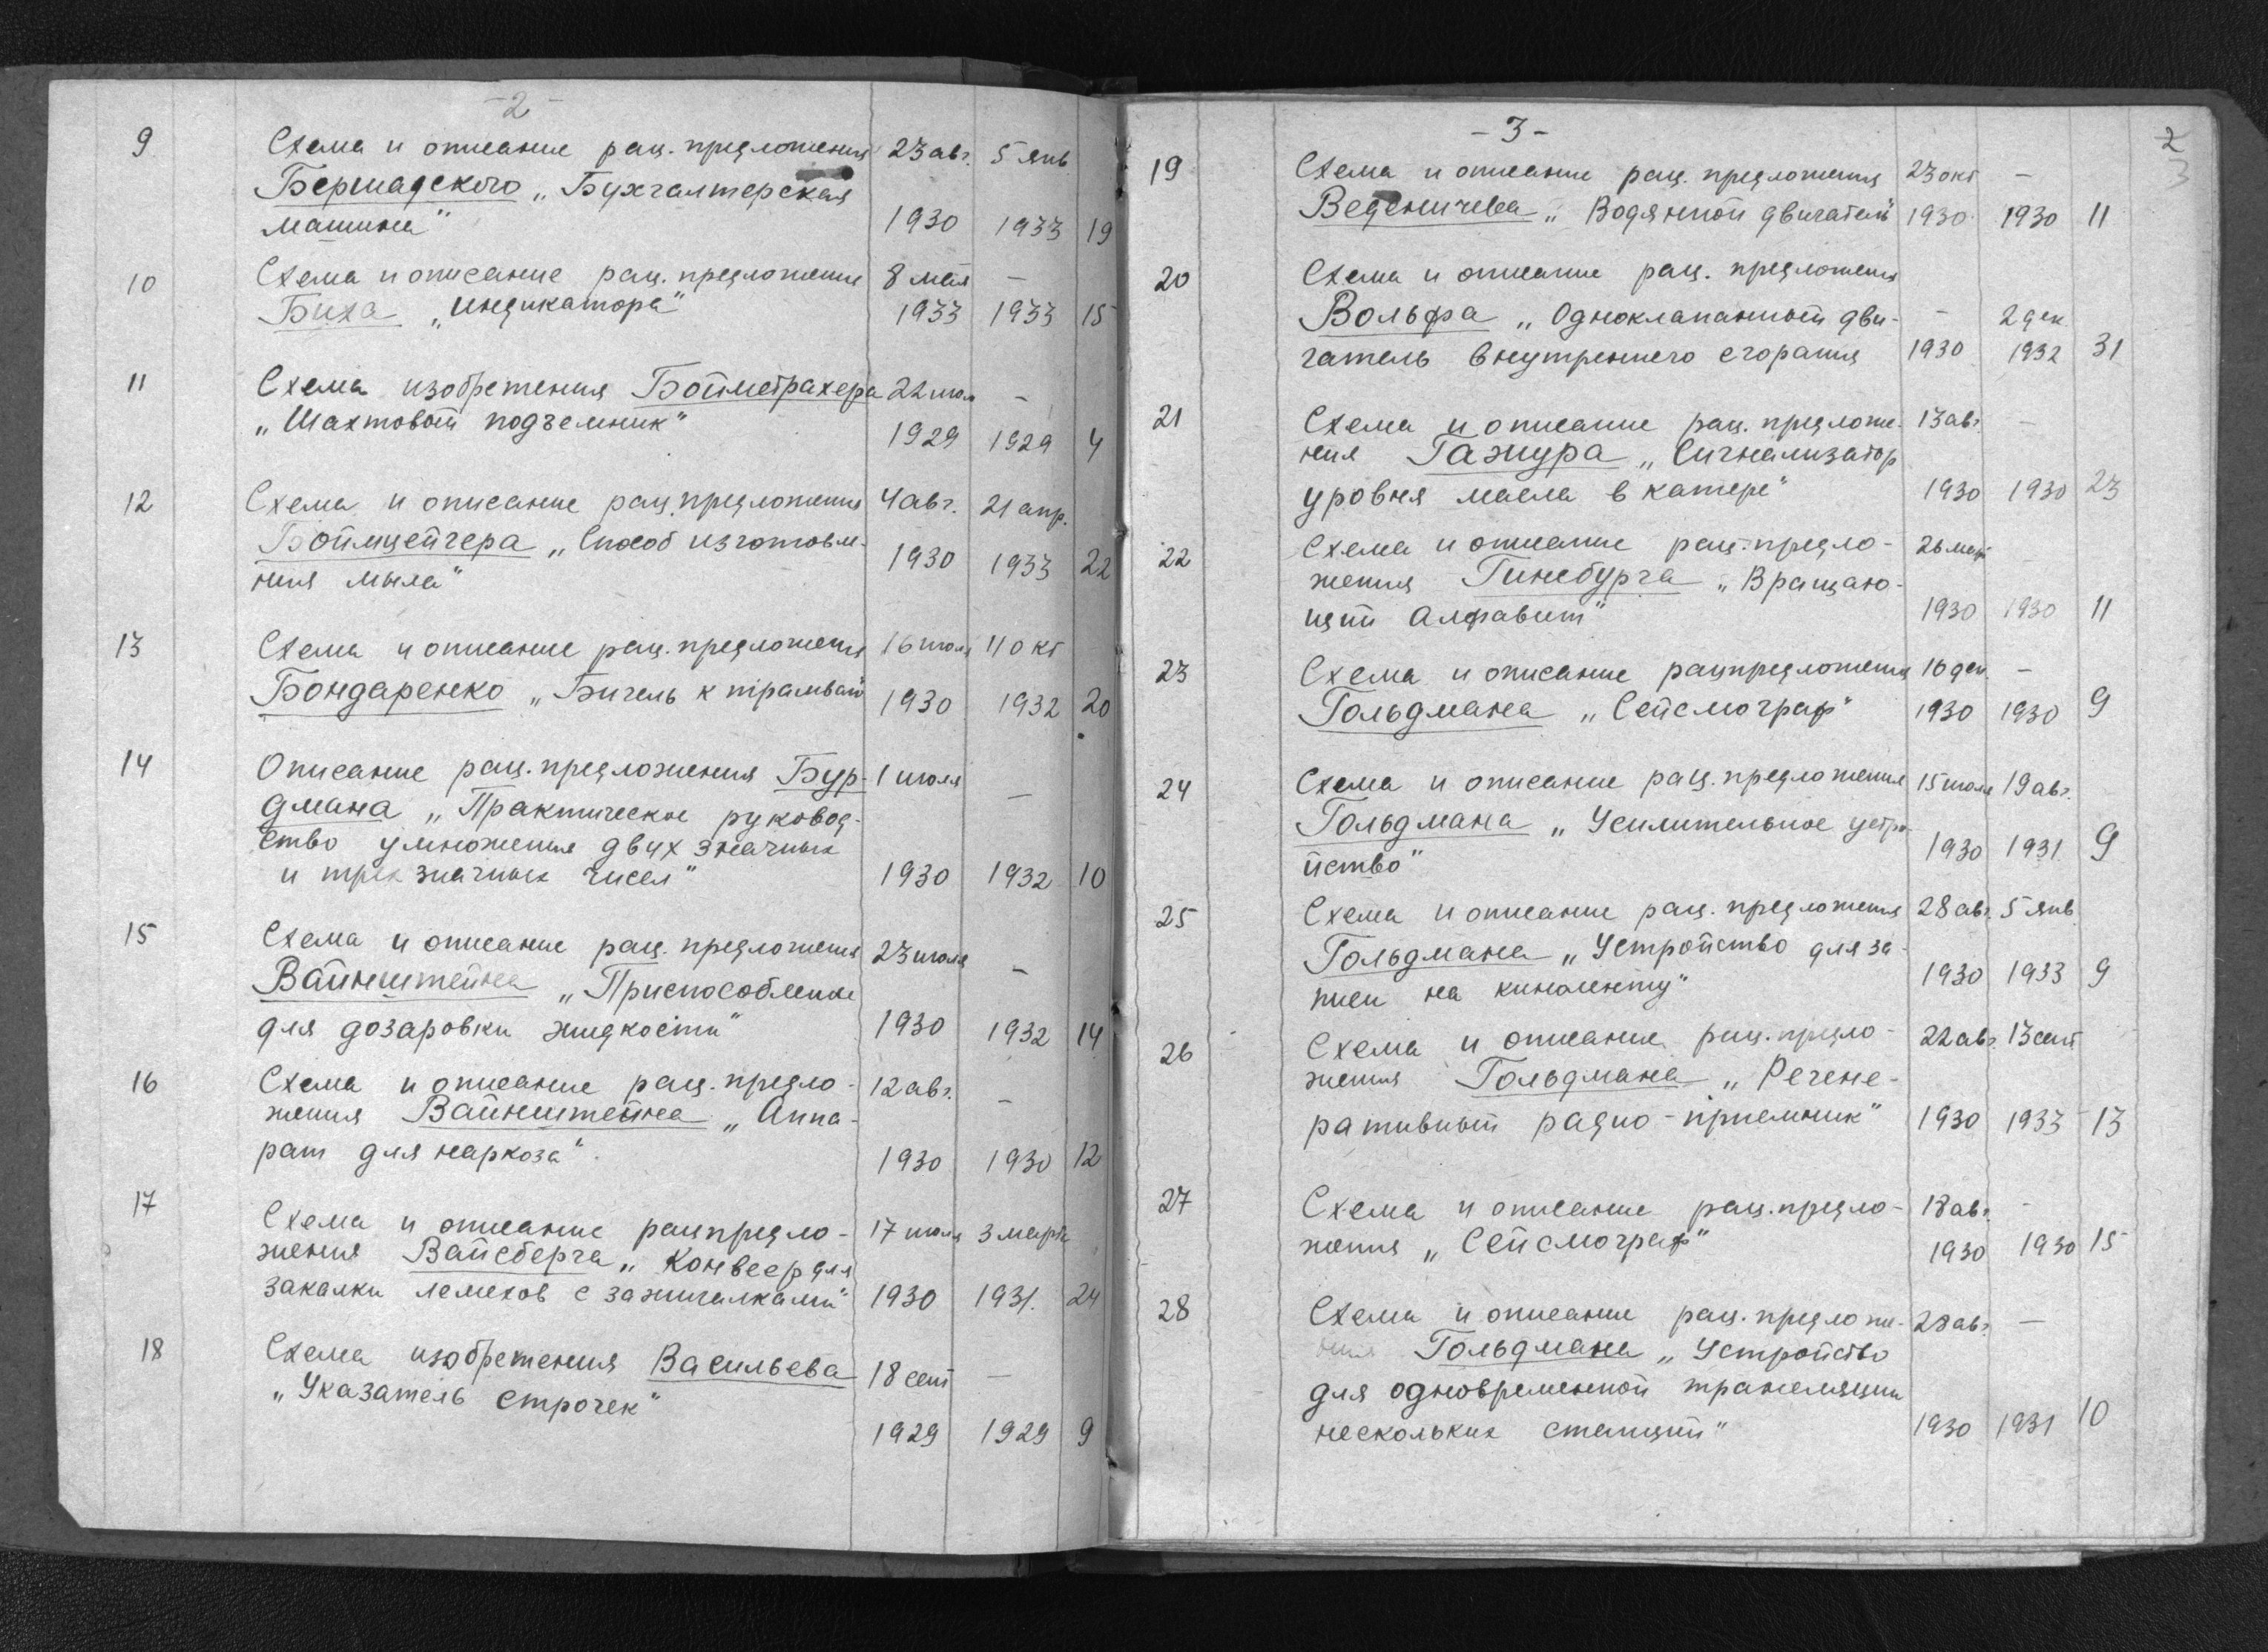 -2-
9 Схема и описание рац. предложения 23 авг. 5 янв
Бершадского „Бухгалтерская
машина" 1930 1933 19
10 Схема и описание рац. предложения 8 мая —
Биха „индикатора" 1933 1933 15
11 Схема изобретения Боймстрахера 22 июл —
„Шахтовый подъемник" 1929 1929 4
12 Схема и описание рац. предложения 4 авг. 21 апр.
Боймцейгера „Способ изготовле-
ния мыла" 1930 1933 22
13 Схема и описание рац. предложения 16 июля 11 окт
Бондаренко „Бигель к трамваю" 1930 1932 20
14 Описание рац. предложения Бур- 1 июля —
дмана „Практическое руковод-
ство умножения двух значных
и трех значных чисел" 1930 1932 10
15 Схема и описание рац. предложения 23 июля —
Вайнштейна „Приспособление
для дозаровки жидкости" 1930 1932 14
16 Схема и описание рац. предло- 12 авг. —
жения Вайнштейна „Аппа-
рат для наркоза". 1930 1930 12
17 Схема и описание рацпредло- 17 июля 3 марта
жения Вайсберга „Конвеер для
закалки лемехов с зажигалками" 1930 1931. 24
18 Схема изобретения Васильева 18 сент —
„Указатель строчек"
1929 1929 9
-3-
2
3
19 Схема и описание рац. предложения 23 окт —
Веденичева „Водянной двигатель" 1930 1930 11
20 Схема и описание рац. предложения
Вольфа „Одноклапанный дви- — 2 дек.
гатель внутреннего сгорания 1930 1932 31
21 Схема и описание рац. предложе- 13 авг. —
ния Гажура „Сигнализатор
уровня масла в катере" 1930 1930 23
22 Схема и описание рац. предло- 26 —
жения Гинсбурга „Вращаю-
щий Алфавит" 1930 1930 11
23 Схема и описание рацпредложения 16 дек. —
Гольдмана „Сейсмограф" 1930 1930 9
24 Схема и описание рац. предложения 15 июля 19 авг.
Гольдмана „Усилительное устро-
йство" 1930 1931. 9
25 Схема и описание рац. предложения 28 авг. 5 янв
Гольдмана „Устройство для за-
писи на киноленту" 1930 1933 9
26 Схема и описание рац. предло- 22 авг. 13 сент
жения Гольдмана „Регене-
ративный радио-приемник" 1930 1933 13
27 Схема и описание рац. предло- 18 авг. —
жения „Сейсмограф" 1930 1930 15
28 Схема и описание рац. предложе- 28 авг. —
ния Гольдмана „Устройство
для одновременной трансляции
нескольких станций" 1930 1931 10